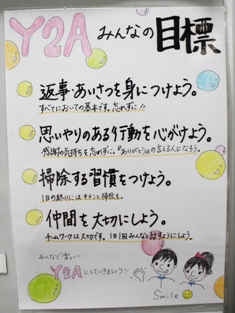 Y2A みんなの目標
返事・あいさつを身につけよう。
すべてにおいての基本です。忘れずに!!
思いやりのある行動を心がけよう。
感謝の気持ちを忘れずに。"ありがとう"の言える人になろう。
掃除する習慣をつけよう。
1日の終りにはキチンと掃除を。
仲間を大切にしよう。
チームワークは大切です。1日1回みんなと話すようにしよう。
みんなで楽しい
Y2Aにしていきましょう!!
Smile